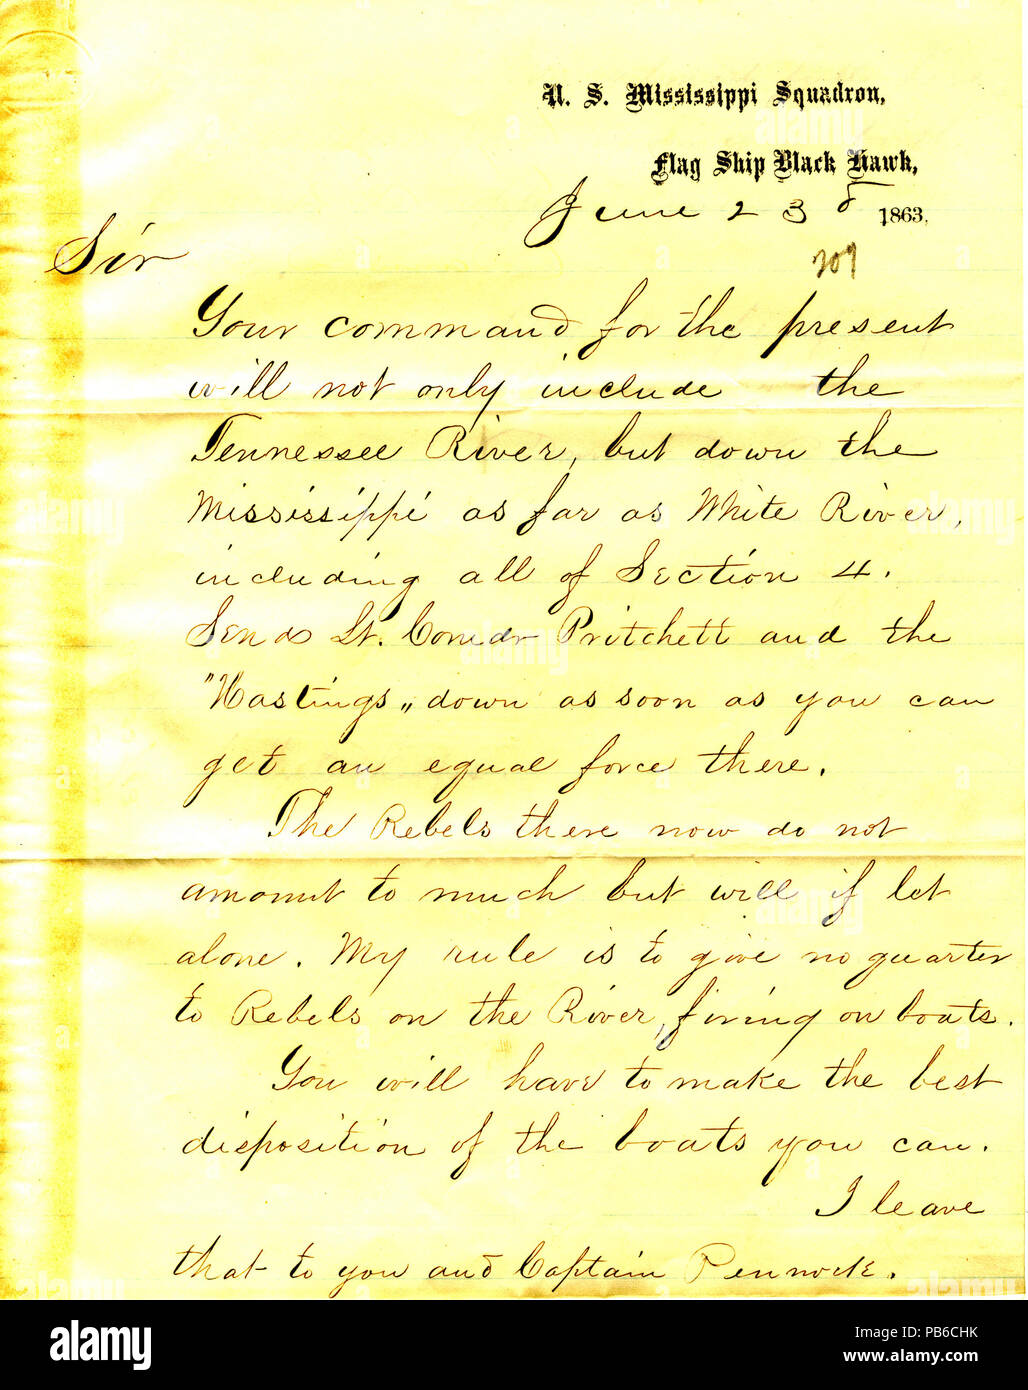 U. S. Mississippi Squadron,
Flag Ship Black Hawk,
June 23d 1863.
209
Sir
Your command for the present
will not only include the
Tennessee River, but down the
Mississippi as far as White River,
including all of Section 4.
Send Lt. Comdr Pritchett and the
"Hastings„ down as soon as you can
get an equal force there.
The Rebels there now do not
amount to much but will if let
alone. My rule is to give no quarter
to Rebels on the River, firing on boats.
You will have to make the best
disposition of the boats you can.
I leave
that to you and Captain Pennock.
alamy
Image ID: PB6CHK
www.alamy.com